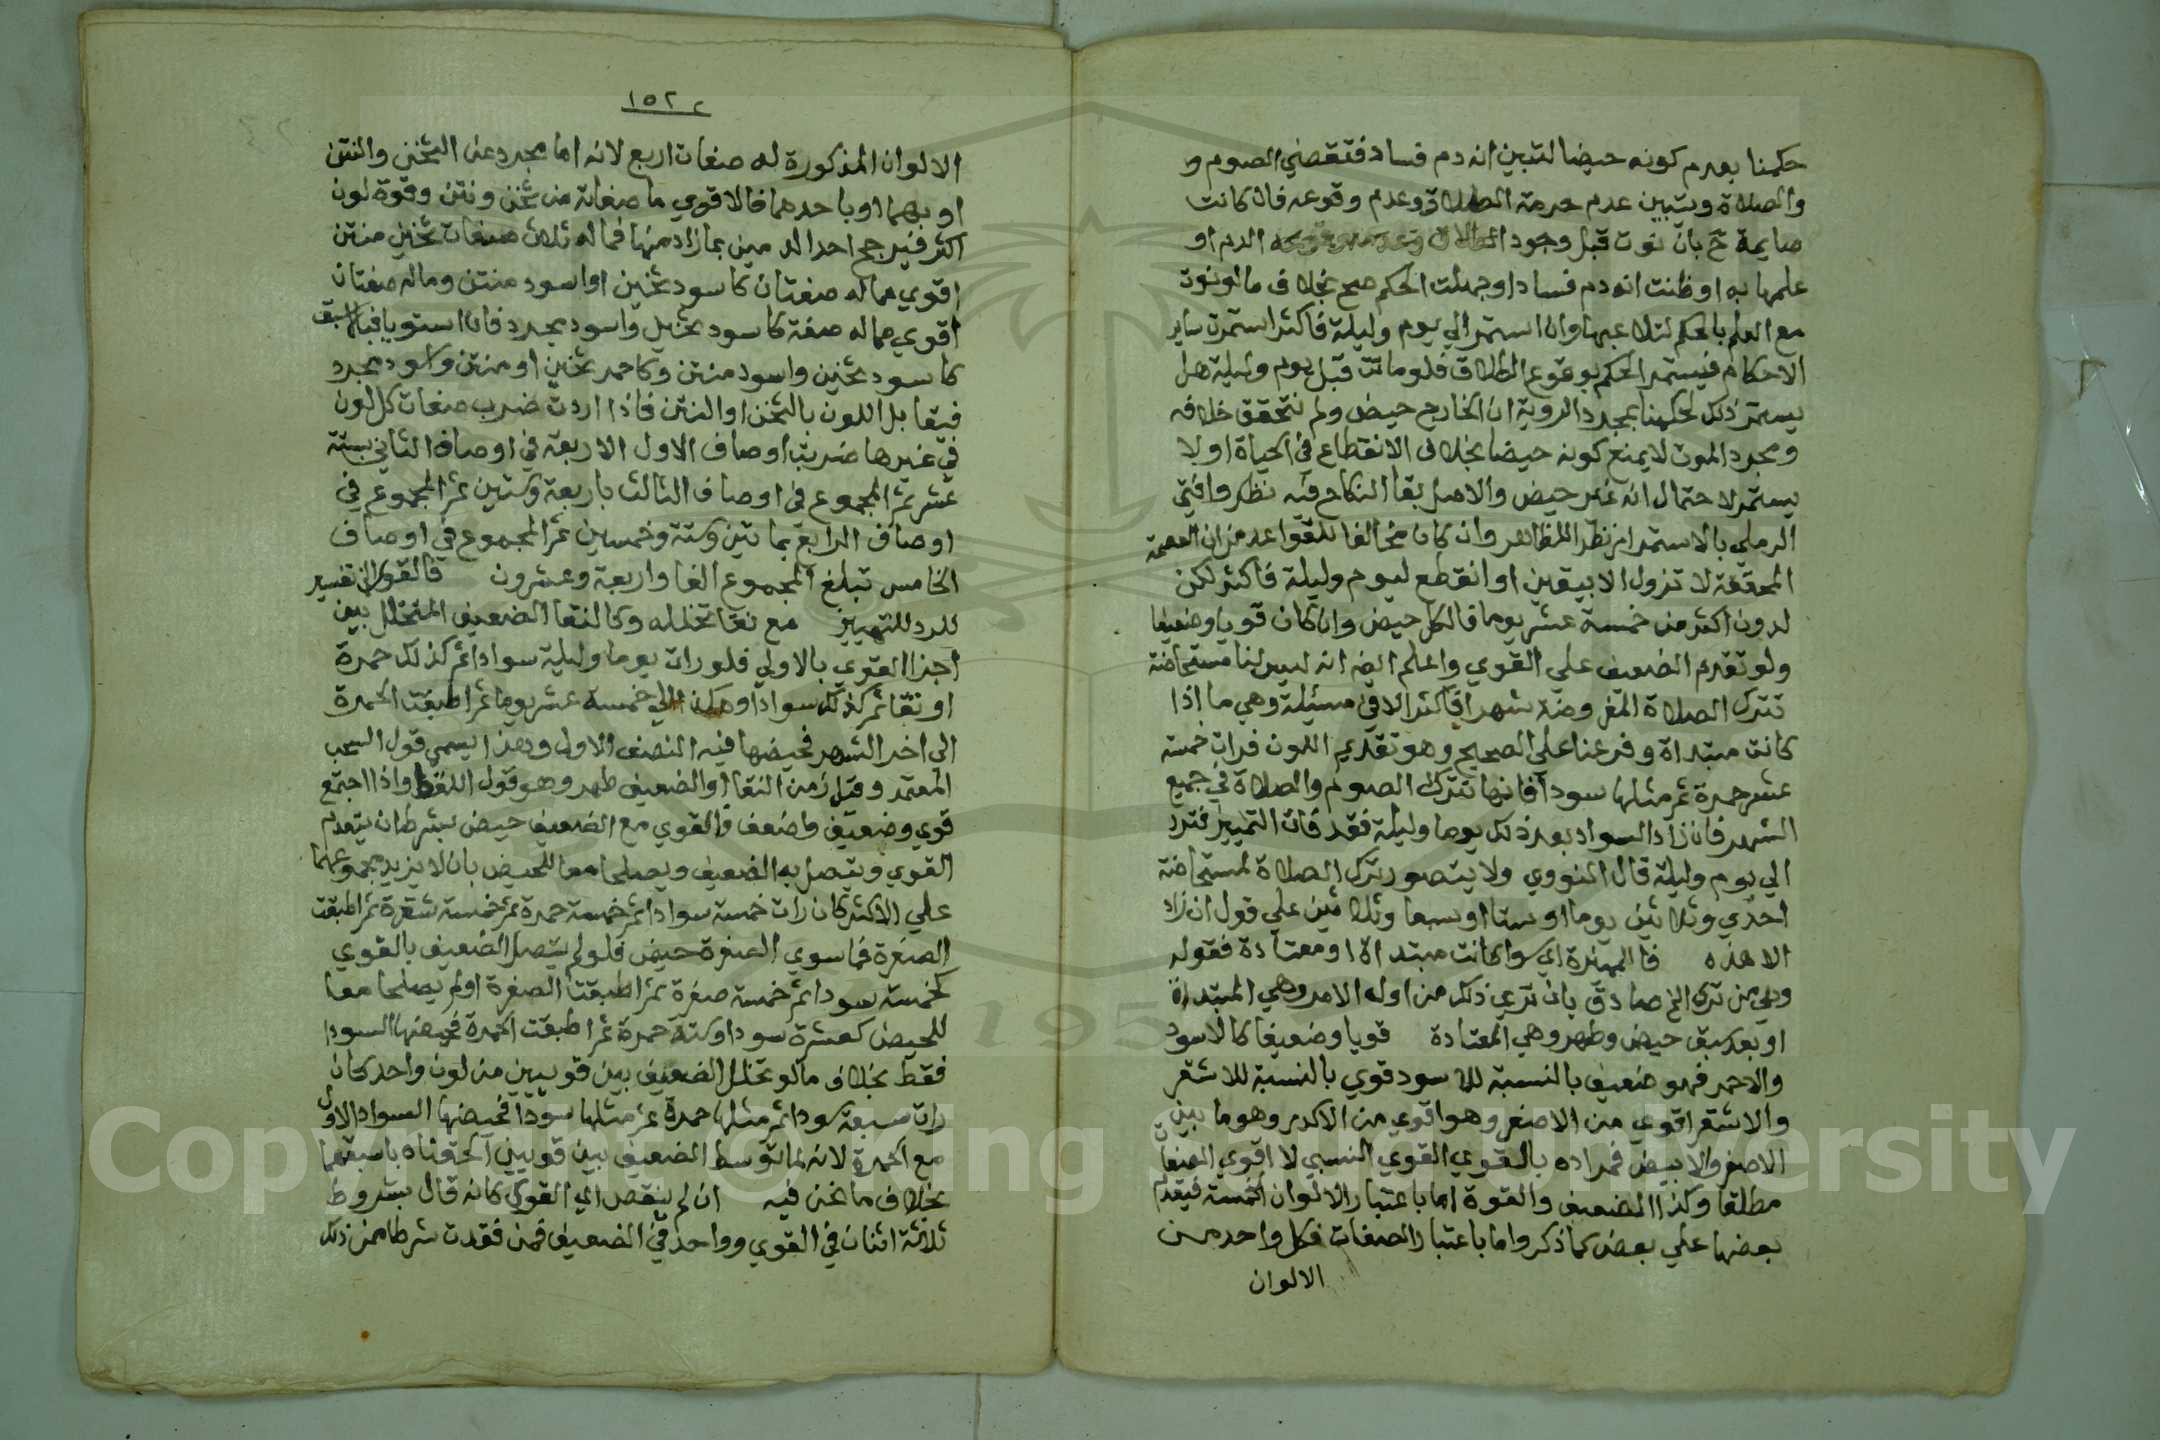 حكمنا بعدم كونه حيضا لتبين انه دم فساد فتقضي الصوم و
والصلاة ويتبين عدم حرمة الطلاق وعدم وقوعه فان كانت
صايمة ح بان نوت قبل وجود الدم او
علمها به او ظنت انه دم فساد او جهلت الحكم صح بخلاف ما لو نوت
مع العلم بالحكم لتلاعبها وان استمر الي يوم وليلة فاكثر استمرت ساير
الاحكام فيستمر الحكم بوقوع الطلاق فلو ماتت قبل يوم وليلة هل
يستمر ذلك لحكمنا بمجرد الروية ان الخارج حيض ولم نتحقق خلافه
ومجرد الموت لا يمنع كونه حيضا بخلاف الانقطاع في الحياة اولا
يستمر لاحتمال انه غير حيض والاصل بقا النكاح فيه نظر وافتي
الرملي بالاستمرار نظرا للظاهر وان كان مخالفا للقواعد من ان العصمة
المحققة لا تزول الا بيقين او انقطع ليوم وليلة فاكثر لكن
لدون اكثر من خمسة عشر يوما فالكل حيض وان كان قويا وضعيفا
ولو تقدم الضعيف علي القوي واعلم ايضا انه ليس لنا مستحاضة
تترك الصلاة المفروضة شهرا فاكثر الا في مسئلة وهي ما اذا
كانت مبتداة وفرعنا علي الصحيح وهو تقديم اللون فرات خمسة
عشر حمرة ثم مثلها سودا فانها تترك الصوم والصلاة في جميع
الشهر فان زاد السواد بعد ذلك يوما وليلة فقد فات التمييز فترد
الي يوم وليلة قال النووي ولا يتصور ترك الصلاة لمستحاضة
احدي وثلاثين يوما او ستا او سبعا وثلاثين علي قول ان زاد
الا هذه فالمميزة اي سوا كانت مبتداة او معتادة فقوله
وهي من تري الخ صادق بان تري ذلك من اول الامر وهي المبتداة
او بعد سبق حيض وطهر وهي المعتادة قويا وضعيفا كالاسود
والاحمر فهو ضعيف بالنسبة للاسود قوي بالنسبة للاشقر
والاشقر اقوي من الاصفر وهو اقوي من الاكدر وهو ما بين
الاصفر والابيض فمراده بالقوي القوي النسبي لا اقوي الصفات
مطلقا وكذا الضعيف والقوة اما باعتبار الالوان الخمسة فيقدم
بعضها علي بعض كما ذكر واما باعتبار الصفات فكل واحد من
الالوان
١٥٢
الالوان المذكورة له صفات اربع لانه اما مجرد عن الثخن والنتن
او بهما او باحدهما فالاقوي ما صفاته من ثخن ونتن وقوة لون
اكثر فيرجح احد الدمين بما زاد منها فما له ثلاث صفات كثخين منتن
اقوي مما له صفتان كاسود ثخين او اسود منتن وما له صفتان
اقوي مما له صفة كاسود ثخين واسود مجرد فان استويا فبالسبق
كاسود ثخين واسود منتن وكاحمر ثخين او منتن واسود مجرد
فيقابل اللون بالثخن او النتن فاذا اردت ضرب صفات كل لون
في غيرها ضربت اوصاف الاول الاربعة في اوصاف الثاني بستة
عشر ثم المجموع في اوصاف الثالث باربعة وستين ثم المجموع في
اوصاف الرابع بمايتين وستة وخمسين ثم المجموع في اوصاف
الخامس تبلغ المجموع الفا واربعة وعشرون فالقوي الخ تفسير
للرد للتمييز مع نقا تخلله وكالنقا الضعيف المتخلل بين
اجزا القوي بالاولي فلو رات يوما وليلة سوادا ثم كذلك حمرة
او نقا ثم كذلك سوادا وهكذا الي خمسة عشر يوما ثم اطبقت الحمرة
الي اخر الشهر فحيضها فيه النصف الاول وهذا يسمي قول السحب
المعتمد وقيل زمن النقا او الضعيف طهر وهو قول اللقط واذا اجتمع
قوي وضعيف واضعف فالقوي مع الضعيف حيض بشرط ان يتقدم
القوي ويتصل به الضعيف ويصلحا معا للحيض بان لا يزيد مجموعهما
علي الاكثر كان رات خمسة سوادا ثم خمسة حمرة ثم خمسة شقرة ثم اطبقت
الصفرة فما سوي الصفرة حيض فلو لم يتصل الضعيف بالقوي
كخمسة سودا ثم خمسة صفرة ثم اطبقت الصفرة او لم يصلحا معا
للحيض كعشرة سودا وستة حمرة ثم اطبقت الحمرة فحيضها السودا
فقط بخلاف ما لو تخلل الضعيف بين قويين من لون واحد كان
رات سبعة سودا ثم مثلها حمرة ثم مثلها سودا فحيضها السواد الاول
مع الحمرة لانه لما توسط الضعيف بين قويين الحقناه باسبقهما
بخلاف ما نحن فيه ان لم ينقص اي القوي كانه قال بشروط
ثلاثة اثنان في القوي وواحد في الضعيف فمن فقدت شرطا من ذلك
Copyright © King Saud University
195